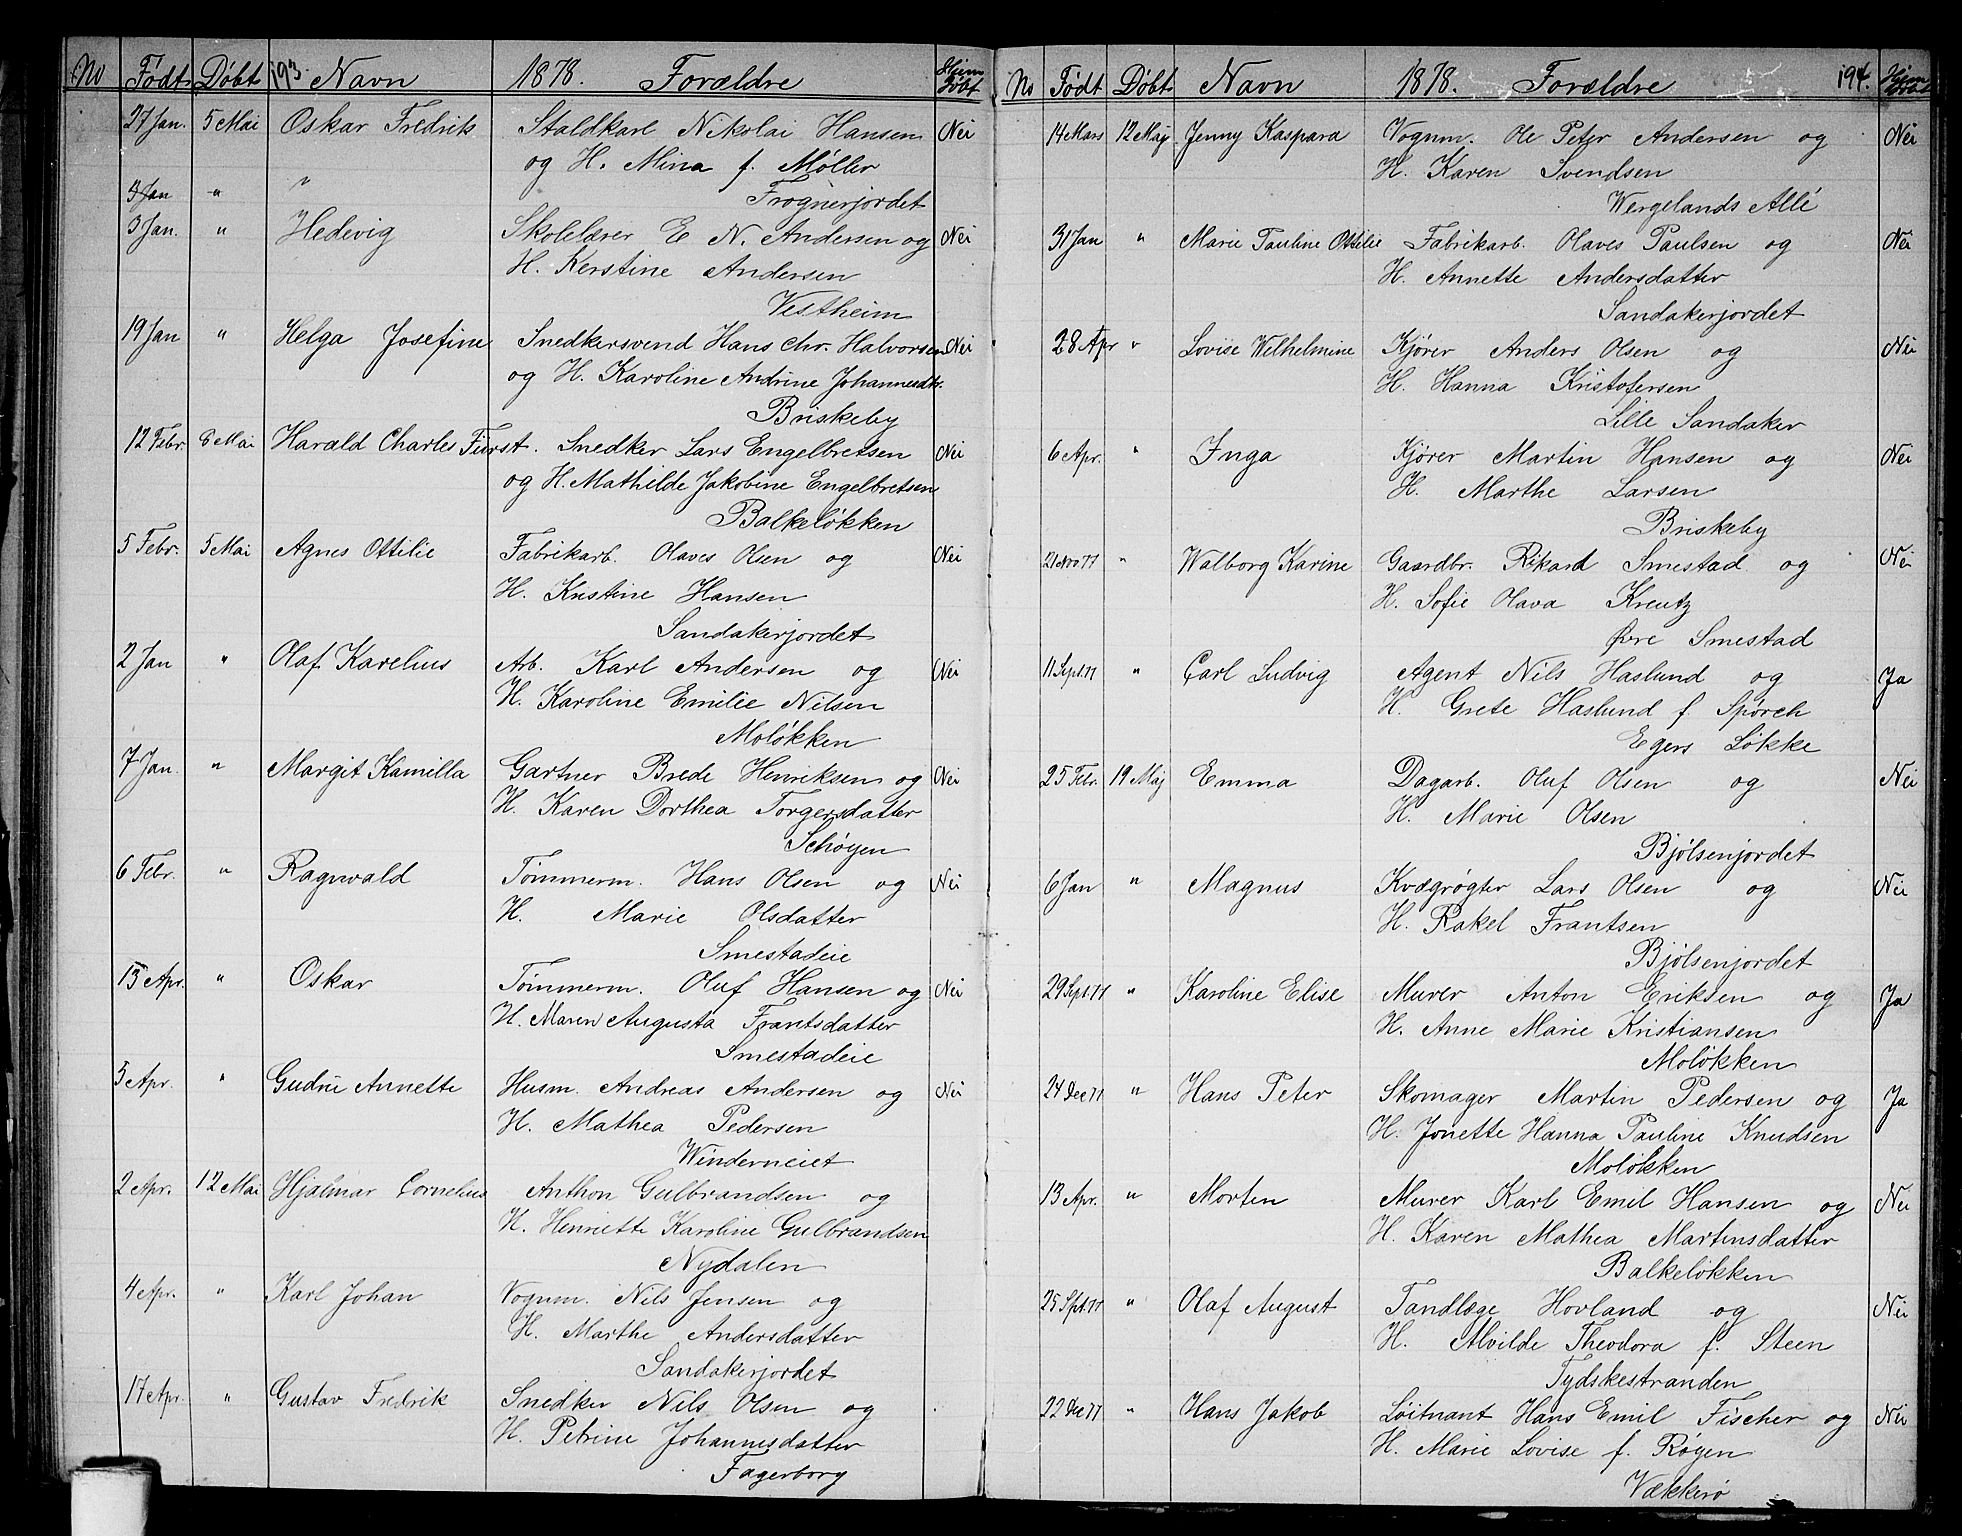 No Født Døbt 193. Navn 1878. Forældre Hjem Døbt
27 Jan. 5 Mai Oskar Fredrik Staldkarl Nikolai Hansen Nei
og H. Mina f. Møller
3 Jan " " Frognerjordet
3 Jan. " Hedevig Skolelærer E. N. Andersen og Nei
H. Kerstine Andersen
Vestheim
19 Jan " Helga Josefine Snedkersvend Hans Chr. Halvorsen Nei
og H. Karoline Andrine Johannesdtr.
Briskeby
12 Febr. 6 Mai Harald Charles Fürst. Snedker Lars Engelbretsen Nei
og H. Mathilde Jakobine Engelbretsen
Balkeløkken
5 Febr. 5 Mai Agnes Ottilie Fabrikarb. Olaves Olsen og Nei
H. Kristine Hansen
Sandakerjordet
2 Jan " Olaf Karelius Arb. Karl Andersen og Nei
H. Karoline Emilie Nilsen
Moløkken
7 Jan. " Margit Kamilla Gartner Brede Henriksen og Nei
H. Karen Dorthea Torgersdatter
Schøyen
6 Febr. " Ragnvald Tømmerm. Hans Olsen og Nei
H. Marie Olsdatter
Smestadeie
13 Apr. " Oskar Tømmerm. Oluf Hansen og Nei
H. Maren Augusta Frantsdatter
Smestadeie
5 Apr. " Gudru Annette Husm. Andreas Andersen og Nei
H. Mathea Pedersen
Winderneiet
2 Apr. 12 Mai Hjalmar Cornelius Anthon Gulbrandsen og
H. Henriette Karoline Gulbrandsen
Nydalen
4 Apr. " Karl Johan Vognm. Nils Jensen og
H. Marthe Andersdatter
Sandakerjordet
17 Apr. " Gustav Fredrik Snedker Nils Olsen og
H. Petrine Johannesdatter
Fagerborg
No Født Døbt Navn 1878. Forældre 194. Hjem Døbt
14 Mars 12 Maj Jenny Kaspara Vognm. Ole Peter Andersen og Nei
H. Karen Svendsen
Wergelands Allé
31 Jan " Marie Pauline Ottilie Fabrikarb. Olaves Paulsen og Nei
H. Annette Andersdatter
Sandakerjordet
28 Apr " Lovise Wilhelmine Kjører Anders Olsen og Nei
H. Hanna Kristofersen
Lille Sandaker
6 Apr. " Inga Kjører Martin Hansen og Nei
H. Marthe Larsen
Briskeby
21 Nov 77 " Walborg Karine Gaardbr. Rikard Smestad og Nei
H. Sofie Olava Kreutz
Øvre Smestad
11 Sept. 77 " Carl Ludvig Agent Nils Haslund og Ja
H. Grete Haslund f. Spørch
Egers Løkke
25 Febr. 19 Maj Emma Dagarb. Oluf Olsen og Nei
H. Marie Olsen
Bjølsenjordet
6 Jan " Magnus Kvægrøgter Lars Olsen og Nei
H. Rakel Frantsen
Bjølsenjordet
29 Sept. 77 " Karoline Elise Murer Anton Eriksen og Ja
H. Anne Marie Kristiansen
Moløkken
24 Dec 77 " Hans Peter Skomager Martin Pedersen og Ja
H. Jonette Hanna Pauline Knudsen
Moløkken
13 Apr. " Morten Murer Karl Emil Hansen og Nei
H. Karen Mathea Martinsdatter
Balkeløkken
25 Spt. 77 " Olaf August Tandlæge Hovland og Nei
H. Alvilde Theodora f. Steen
Tydskestranden
22 Dec 77 " Hans Jakob Løitnant Hans Emil Fischer og Nei
H. Marie Lovise f. Røyen
Vækkerø